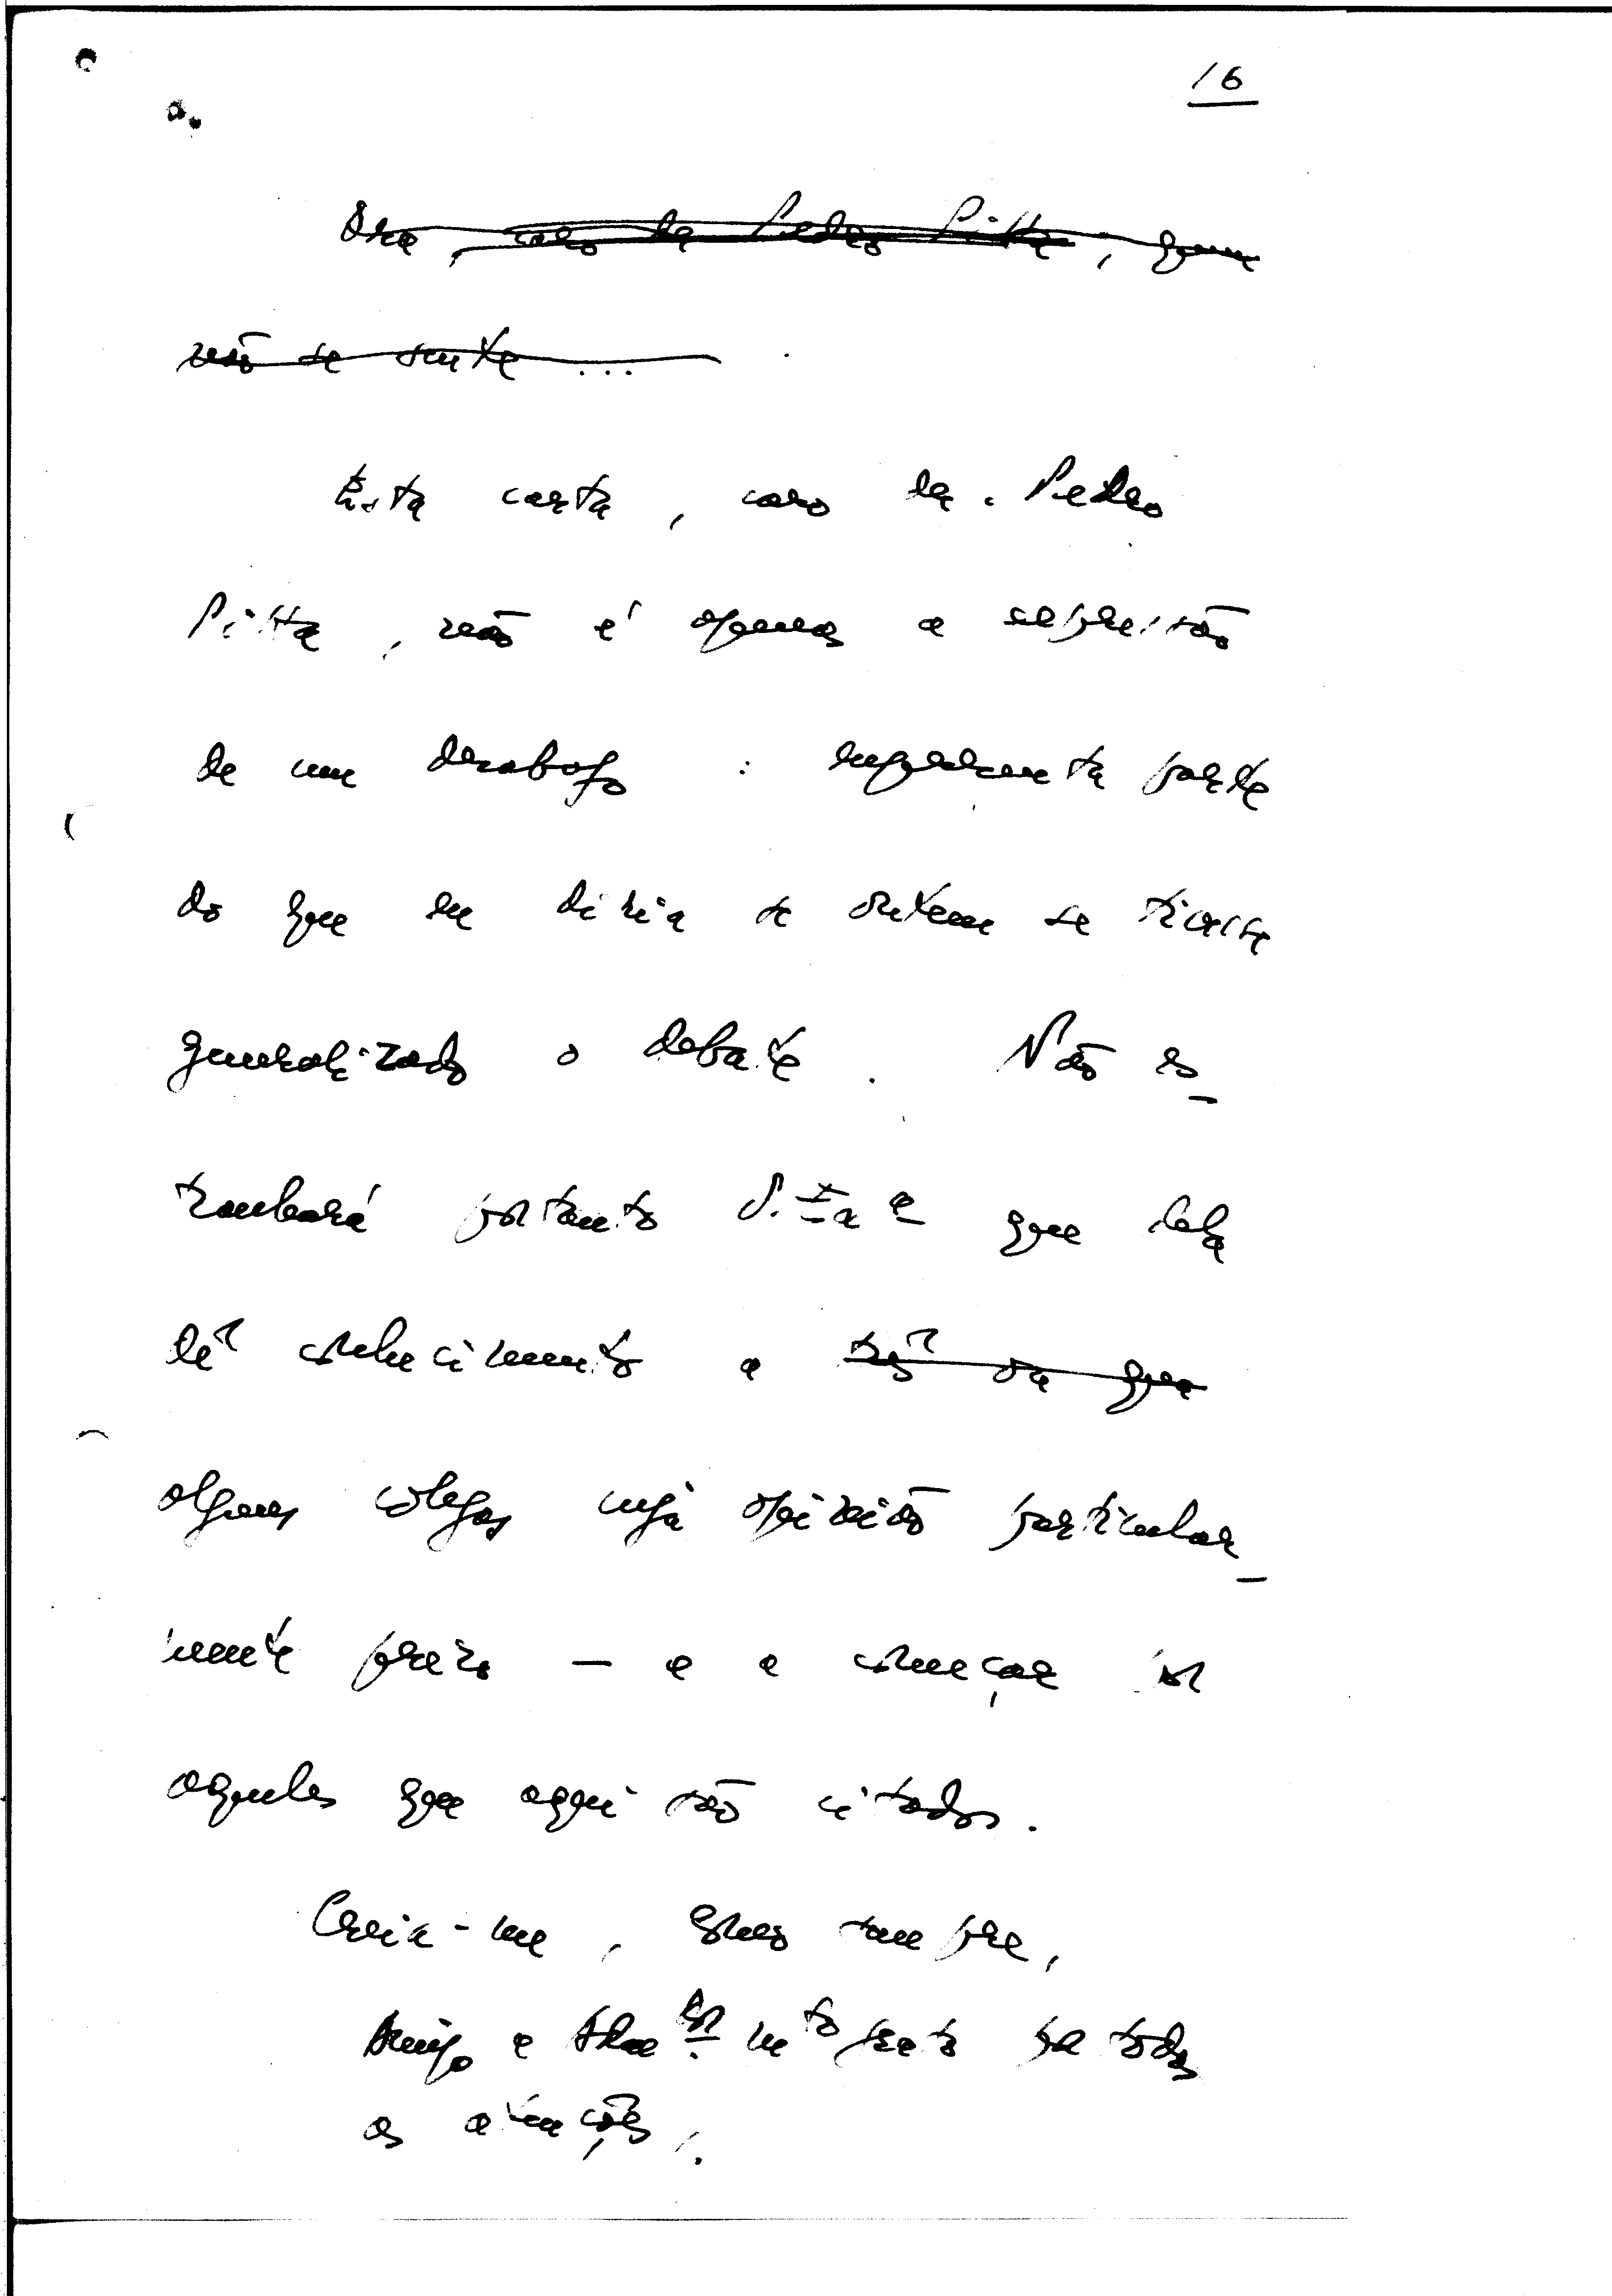 16
Ora, caro Dr. Pedro Pitta, quem
não se sente ...
Esta carta, caro Dr. Pedro
Pitta, não é apenas a expressão
de um desabafo : representa parte
do que eu diria se ontem se tivesse
generalizado o debate. Não es-
tranhará portanto V. Exa. que dela
dê conhecimento a
alguns colegas cuja opinião particular-
mente prezo — e a começar por
aqueles que aqui são citados.
Creia-me, como sempre,
Amigo e Admor. mto grato por todas
as atenções,